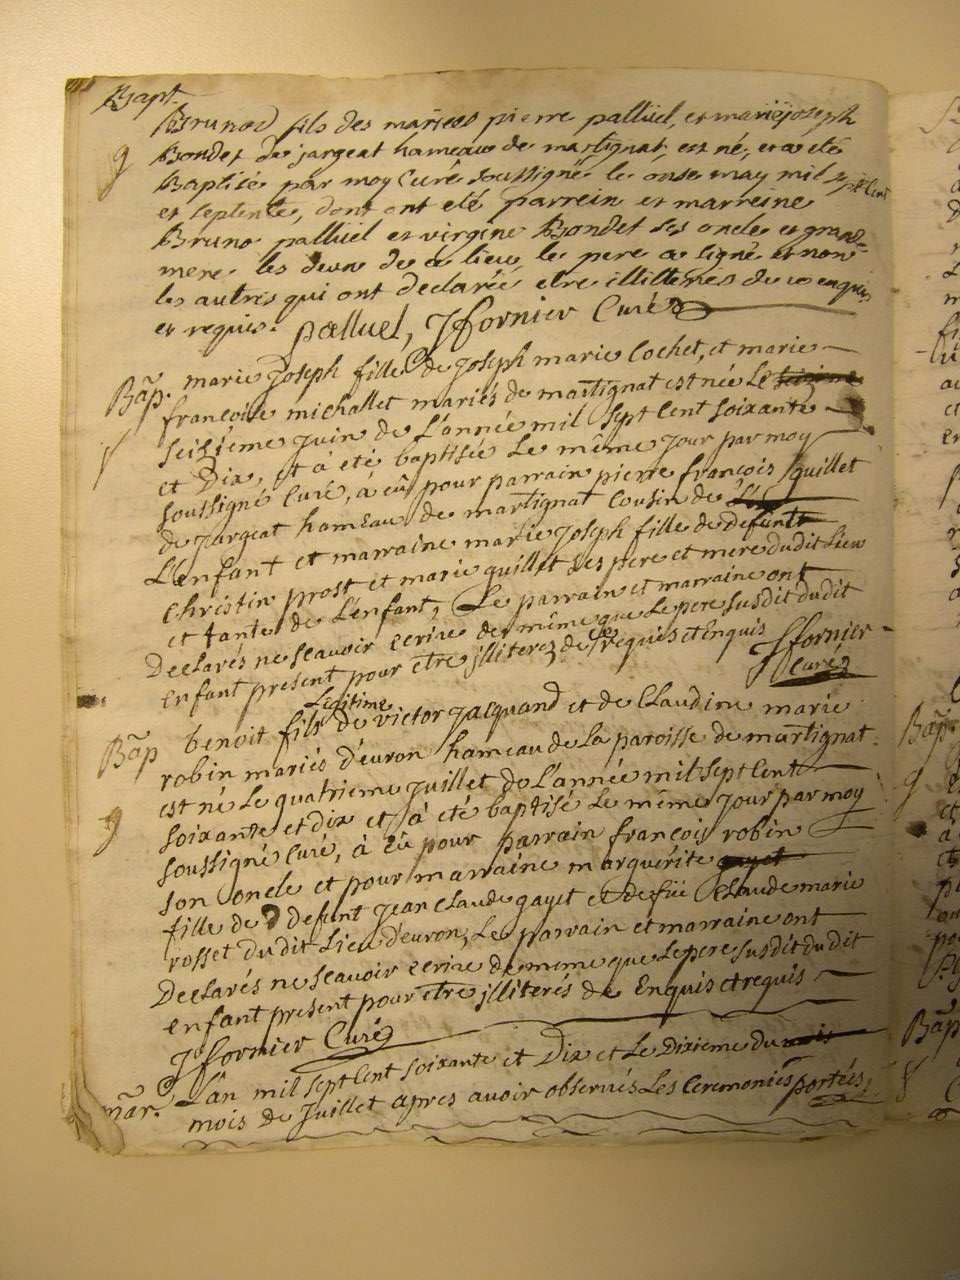 Bapt.
Brunod fils des mariees pierre palluel, et marie joseph
g Bondet de jargeat hameaux de martignat, est né, et a eté
Baptisée par moy Curé soussigné le onse may mil sept Cent
et septente, dont ont eté parrein et marreine
Bruno palluel et virgine Bondet ses oncle et grand=
mere les deux de ce lieu, le pere a signé et non
les autres qui ont declareé etre illitterrés de ce enquis
et requis. palluel, J fornier Curé
Bap. marie joseph fille de joseph marie Cochet, et marie
françoise michallet mariés de martignat est née Le
seizieme juin de L'année mil sept Cent soixante
et Dix, et à eté baptisée Le même jour par moy
soussigné Curé, à eû pour parrain pierre françois guillet
de jargeat hameau de martignat Cousin de
L'enfant et marraine marie joseph fille de defunts
Christin prost et marie guillet ses pere et mere dudit Lieu
et tante de L'enfant, Le parrain et marraine ont
Declarés ne scavoir ecrire de même que Le pere susdit dudit
enfant present pour etre illiterez de ce requis et Enquis J fornier
Curé
Legitime
Bap benoit fils de victor jacquand et de Claudine marie
robin mariés d'euron hameau de La paroisse de martignat
est né Le quatrieme juillet de L'année mil sept Cent
g soixante et dix et à eté baptisé Le même jour par moy
soussigné Curé, à eû pour parrain françois robin
son oncle et pour marraine marguérite gayet
fille de defunt jean Claude gayet et defüe Claude marie
rosset dudit Lieu d'euron, Le parrain et marraine ont
Declarés ne scavoir ecrire de meme que Le pere susdit dudit
enfant present pour être illiterés de Enquis et requis
J fornier Curé
mar. L'an mil sept Cent soixante et Dix et Le Dixieme du mois
mois de Juillet apres avoir observés Les Ceremonies portées